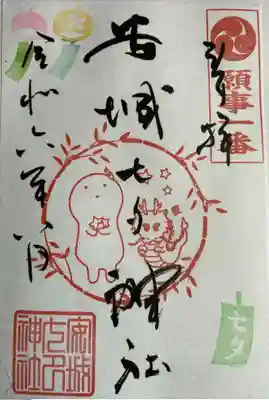 奉拝
願事一番
安城七夕神社
令和六年 月
七夕
安城
七夕
神社